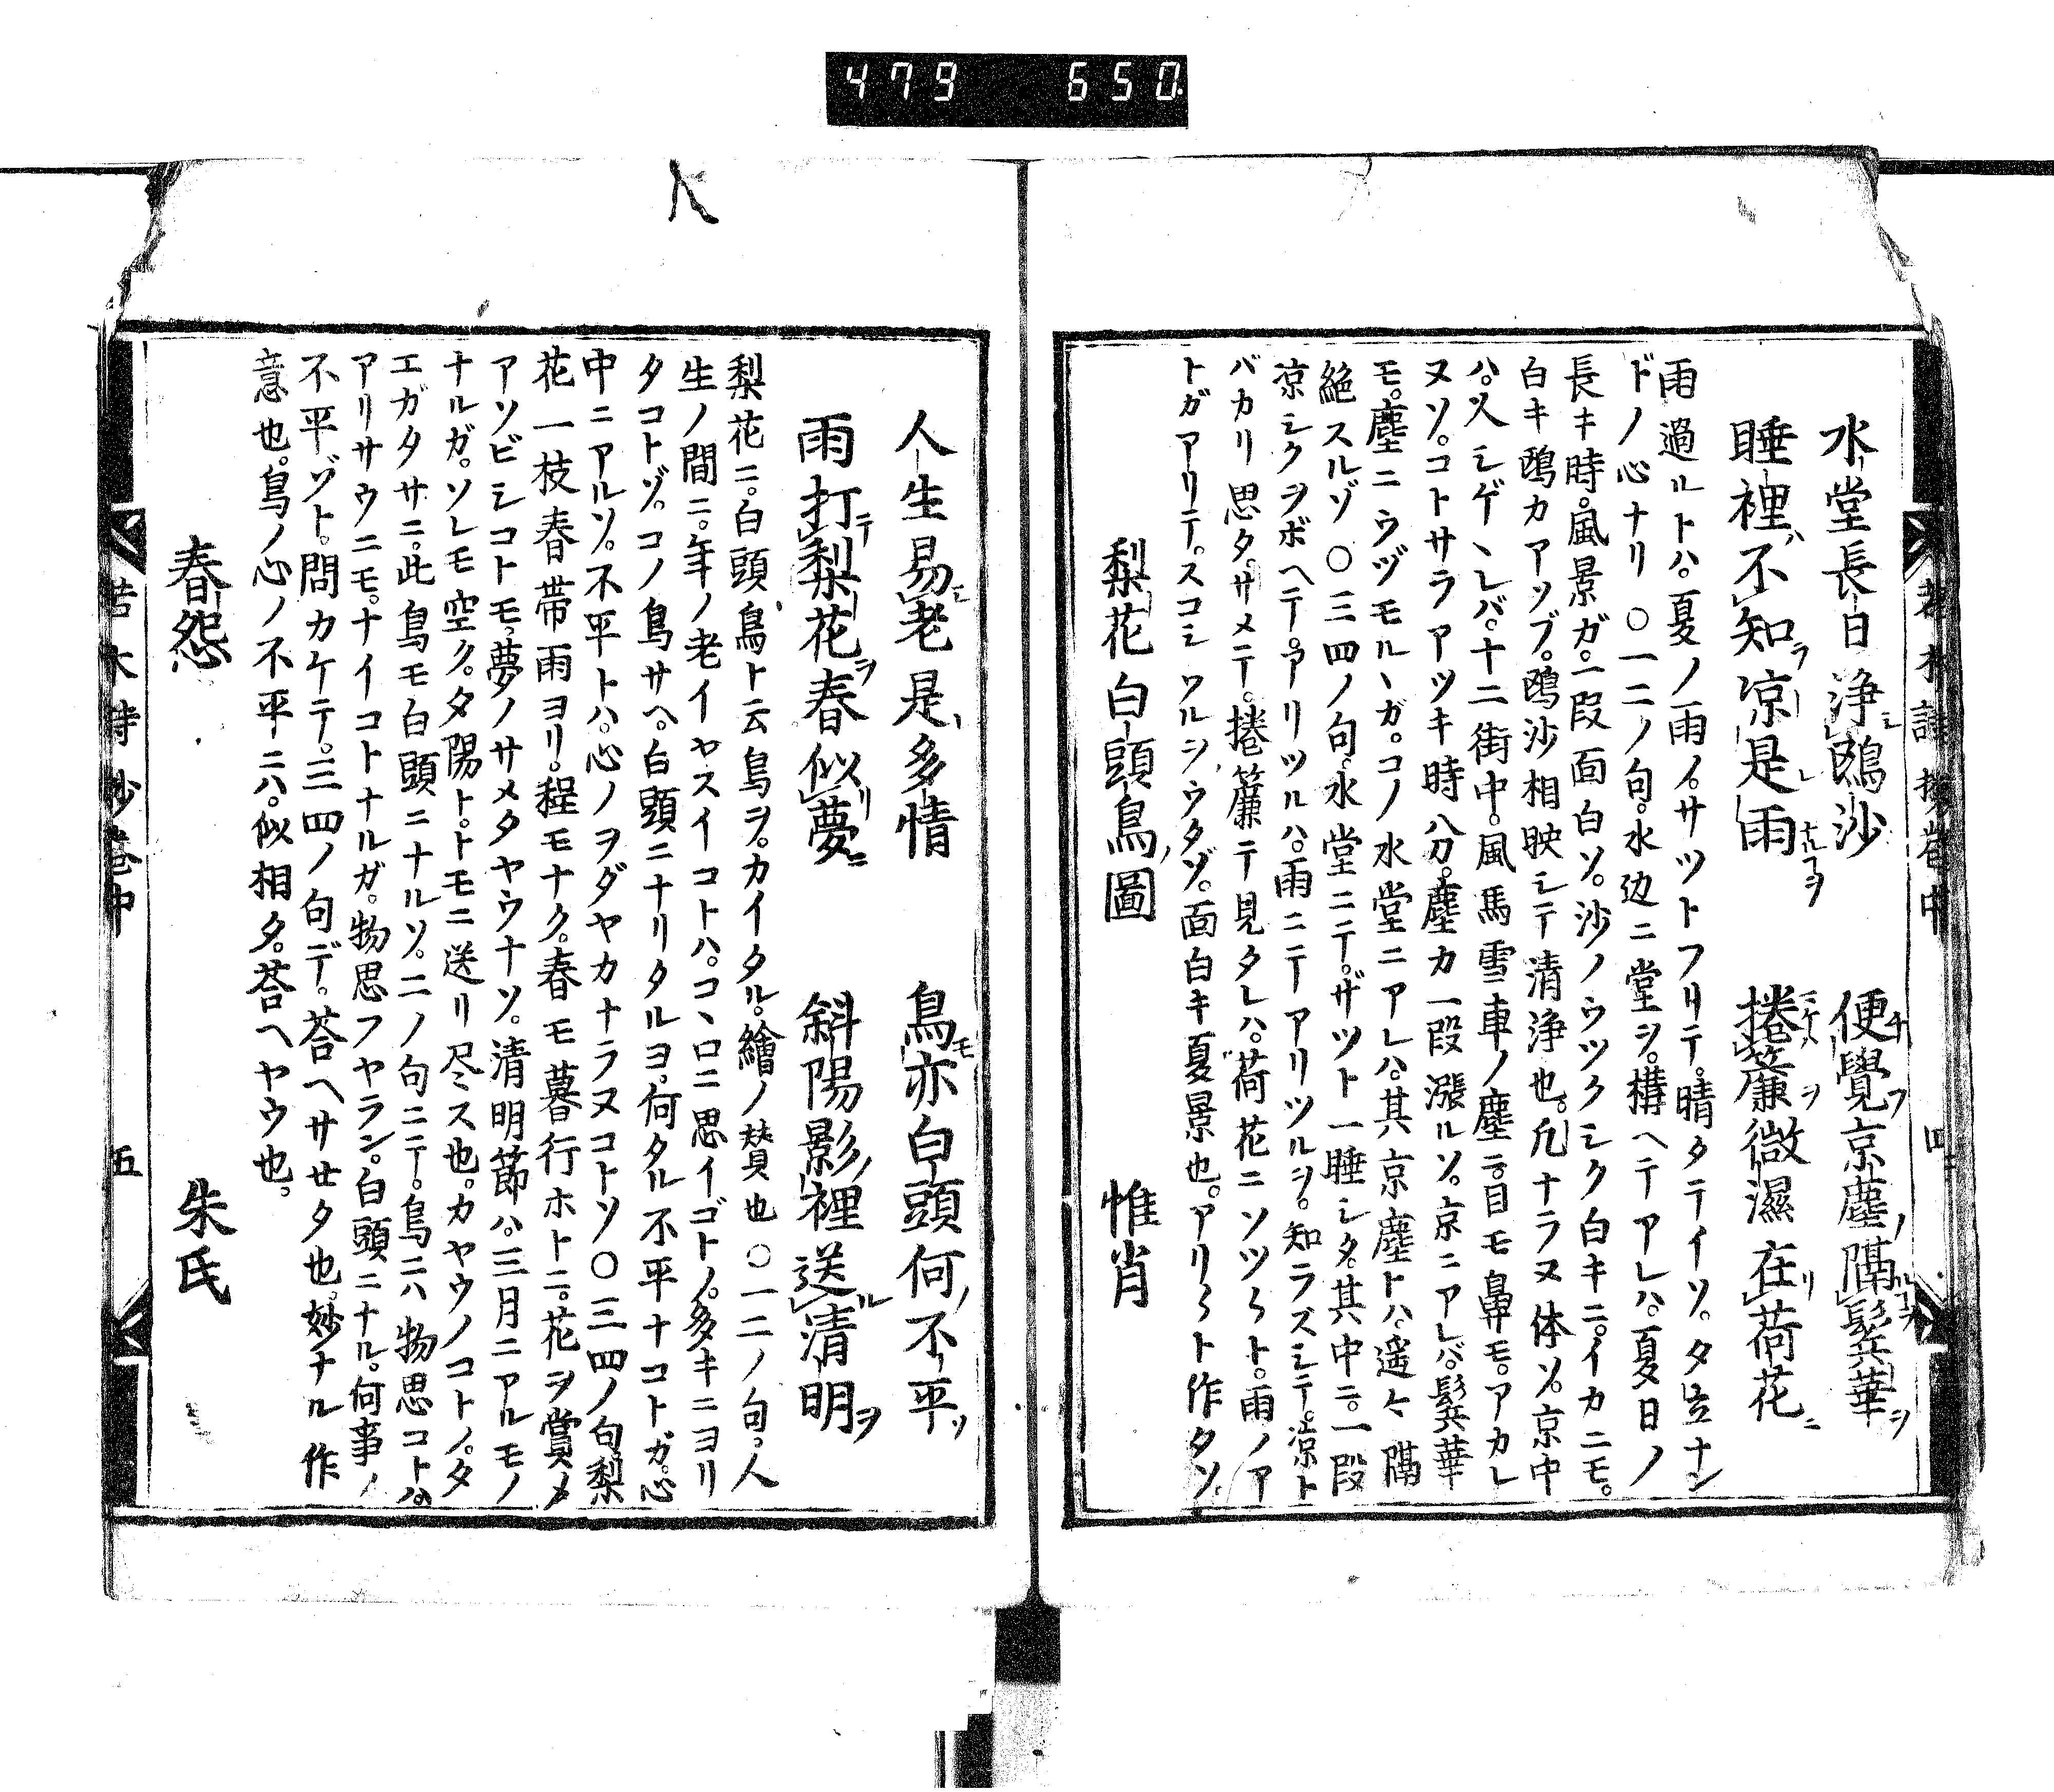 479 650
水堂長日浄鷗沙　便覺京塵隔鬂華
睡裡不知凉是雨　捲簾微濕在荷花
雨過ルトハ。夏ノ雨ノ。サツトフリテ。晴タテイソ。夕立ナン
ドノ心ナリ○一二ノ句。水辺ニ堂ヲ。構ヘテアレハ。夏日ノ
長キ時。風景ガ。一段面白ソ。沙ノウツクシク白キニ。イカニモ。
白キ鷗カアソブ。鷗沙相映シテ清浄也。凡ナラヌ体ソ。京中
ハ。人シゲヽレバ。十二街中。風馬雪車ノ塵ニ。目モ鼻モ。アカレ
ヌソ。コトサラアツキ時分。塵カ一段漲ルソ。京ニアレバ。鬂華
モ。塵ニウヅモルヽガ。コノ水堂ニアレハ。其京塵トハ。遥ケ隔
絶スルゾ○三四ノ句。水堂ニテ。ザツト一睡シタ。其中ニ。一段
凉シクヲボヘテ。アリツルハ。雨ニテアリツルヲ。知ラズシテ。凉ト
バカリ思タ。サメテ。捲簾テ見タレハ。荷花ニソツ〱ト。雨ノア
トガアリテ。スコシワルヲ、ウタゾ。面白キ夏景也。アリ〱ト作タソ。
梨花白頭鳥圖　惟肖
若木詩抄巻中　四
人生易老是多情　鳥亦白頭何不平
雨打梨花春似夢　斜陽影裡送清明
梨花ニ。白頭鳥ト云鳥ヲ。カイタル。繪ノ賛也○一二ノ句。人
生ノ間ニ。年ノ老イヤスイコトハ。コヽロニ思イゴトノ。多キニヨリ
タコトゾ。コノ鳥サヘ。白頭ニナリタルヨ。何タル不平ナコトガ。心
中ニアルソ。不平トハ。心ノヲダヤカナラヌコトソ○三四ノ句梨
花一枝春帯雨ヨリ。程モナク。春モ暮行ホトニ。花ヲ賞メ
アソビシコトモ。夢ノサメタヤウナソ。清明節ハ。三月ニアルモノ
ナルガ。ソレモ空ク。夕陽ト。トモニ送リ尽ス也。カヤウノコトノ。タ
エガタサニ。此鳥モ白頭ニナルソ。二ノ句ニテ。鳥ニハ物思コトハ。
アリサウニモ。ナイコトナルガ。物思フヤラン。白頭ニナル。何事ノ
不平ゾト。問カケテ。三四ノ句デ。荅ヘサせタ也。妙ナル作
意也。鳥ノ心ノ不平ニハ。似相タ。荅ヘヤウ也。
春怨　朱氏
若木詩抄巻中　五